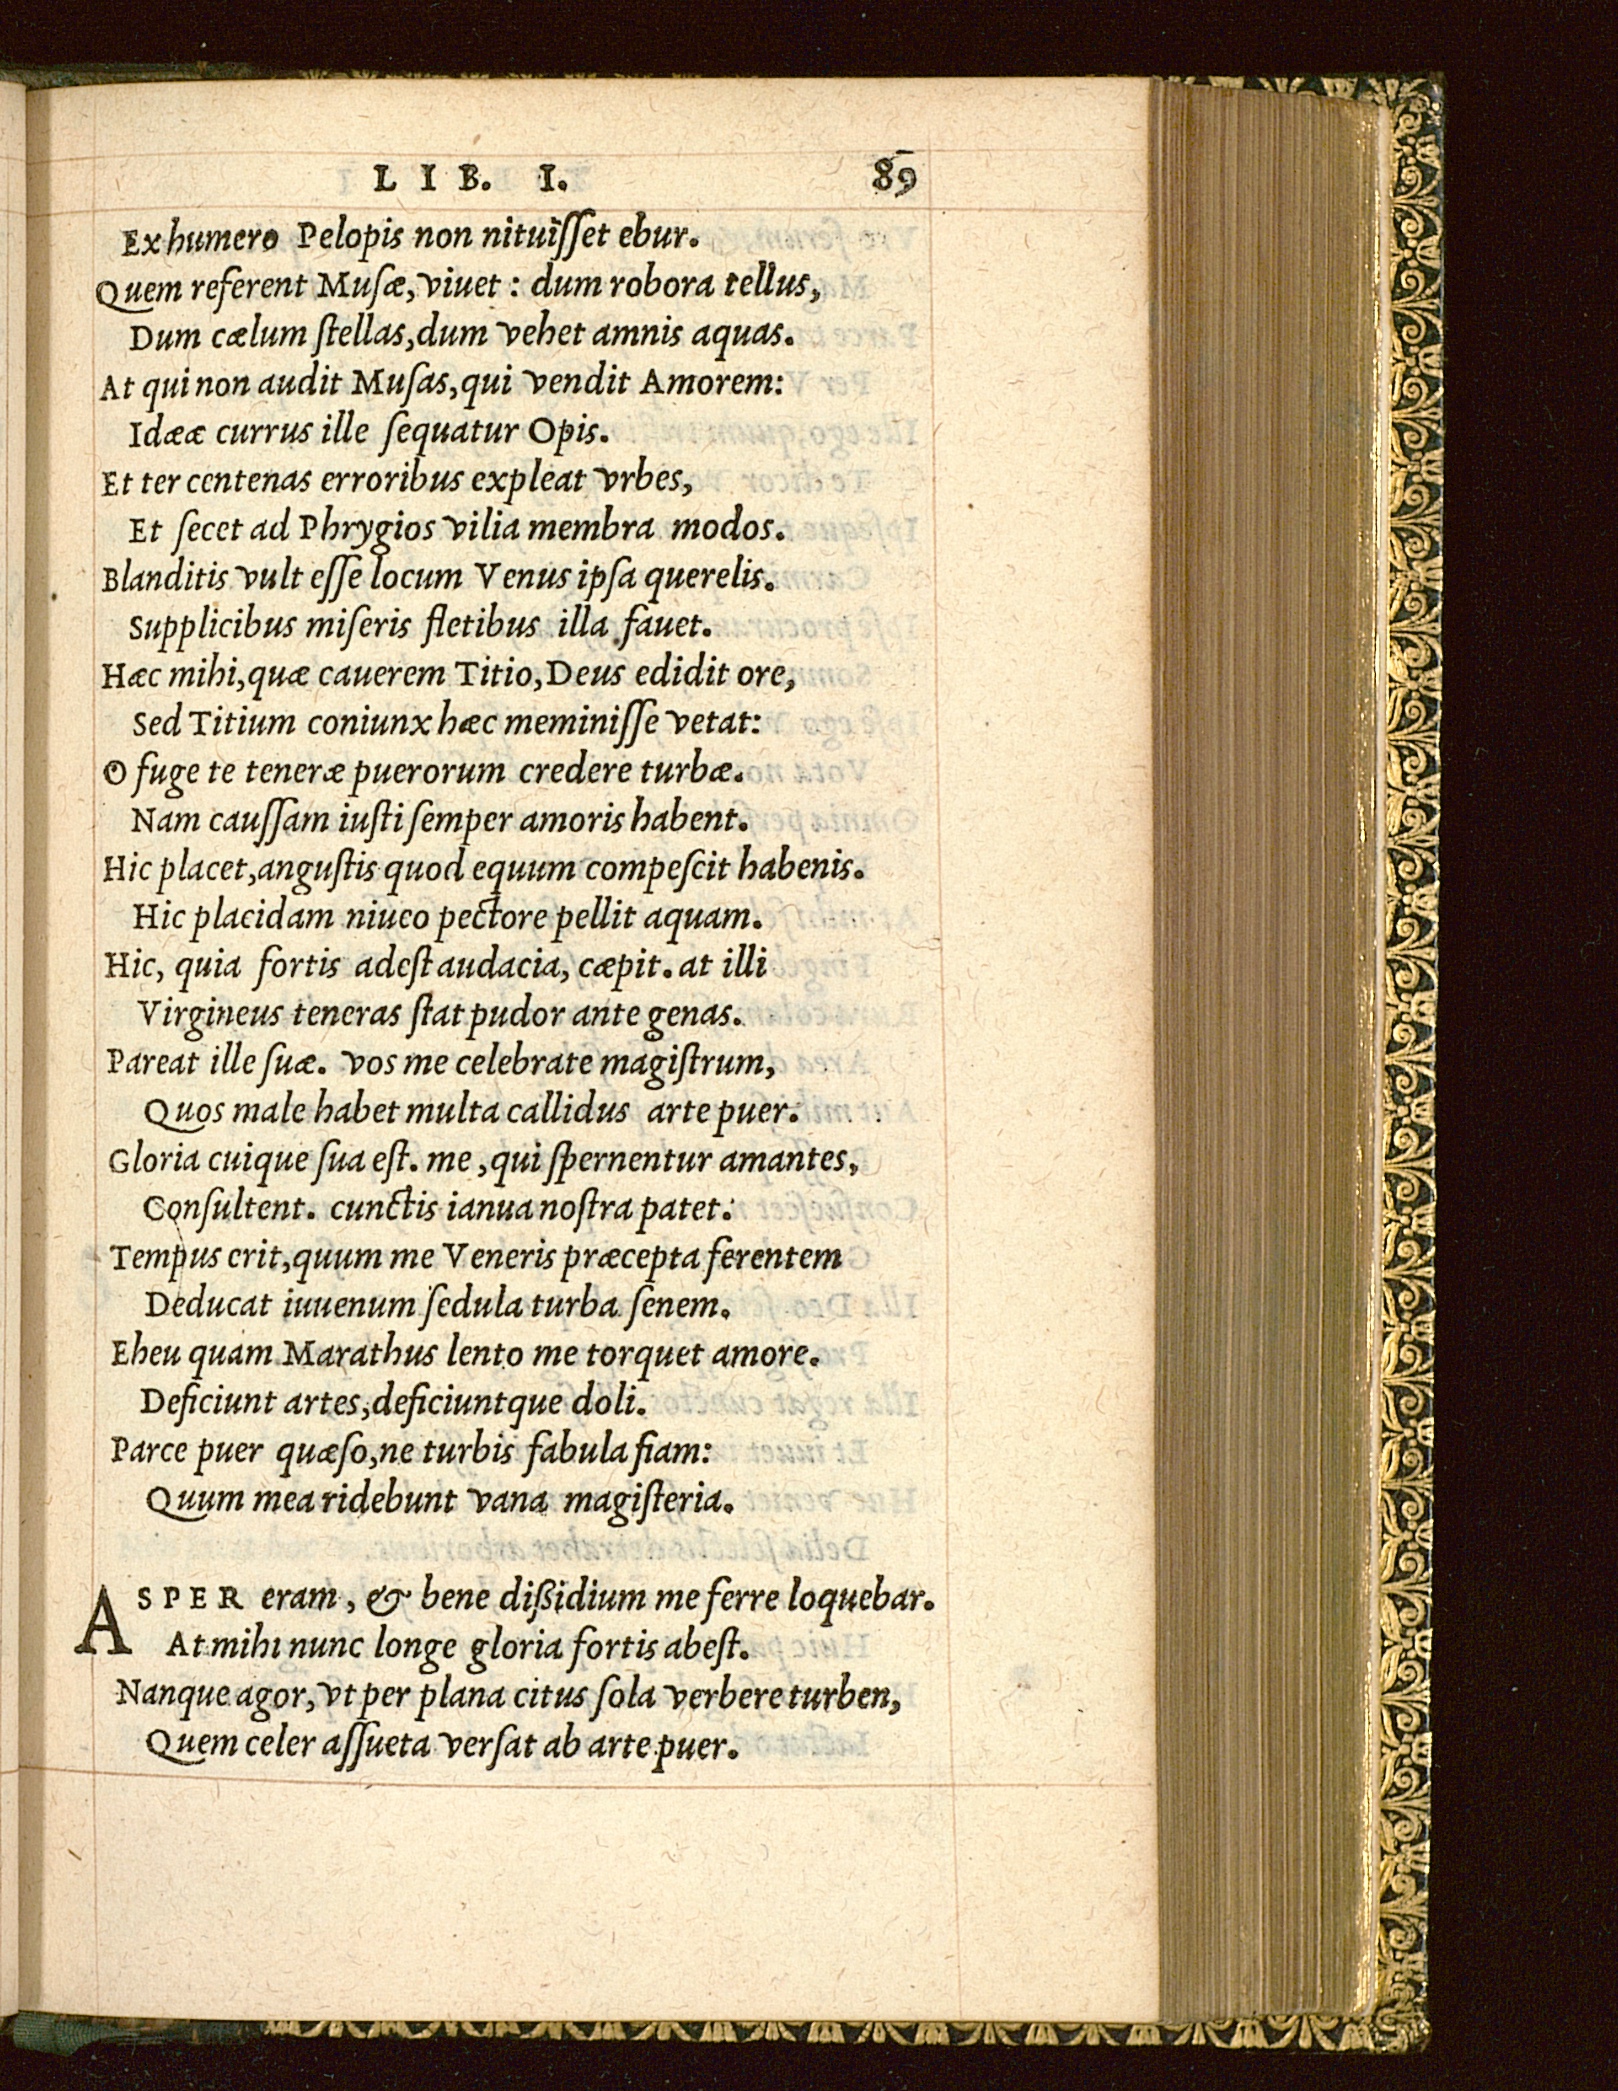 LIB. I. 89
Ex humero Pelopis non nituiſſet ebur.
Quem referent Muſæ, viuet : dum robora tellus,
Dum cælum ſtellas, dum vehet amnis aquas.
At qui non audit Muſas, qui vendit Amorem:
Idææ currus ille ſequatur Opis.
Et ter centenas erroribus expleat vrbes,
Et ſecet ad Phrygios vilia membra modos.
Blanditis vult eſſe locum Venus ipſa querelis.
Supplicibus miſeris fletibus illa fauet.
Hæc mihi, quæ cauerem Titio, Deus edidit ore,
Sed Titium coniunx hæc meminiſſe vetat:
O fuge te teneræ puerorum credere turbæ.
Nam cauſſam iuſti ſemper amoris habent.
Hic placet, anguſtis quod equum compeſcit habenis.
Hic placidam niueo pectore pellit aquam.
Hic, quia fortis adeſt audacia, cæpit. at illi
Virgineus teneras ſtat pudor ante genas.
Pareat ille ſuæ. vos me celebrate magiſtrum,
Quos male habet multa callidus arte puer.
Gloria cuique ſua eſt. me, qui ſpernentur amantes,
Conſultent. cunctis ianua noſtra patet.
Tempus erit, quum me Veneris præcepta ferentem
Deducat iuuenum ſedula turba ſenem.
Eheu quam Marathus lento me torquet amore.
Deficiunt artes, deficiuntque doli.
Parce puer quæſo, ne turbis fabula fiam:
Quum mea ridebunt vana magiſteria.
ASPER eram, & bene dißidium me ferre loquebar.
At mihi nunc longe gloria fortis abeſt.
Nanque agor, vt per plana citus ſola verbere turben,
Quem celer aſſueta verſat ab arte puer.